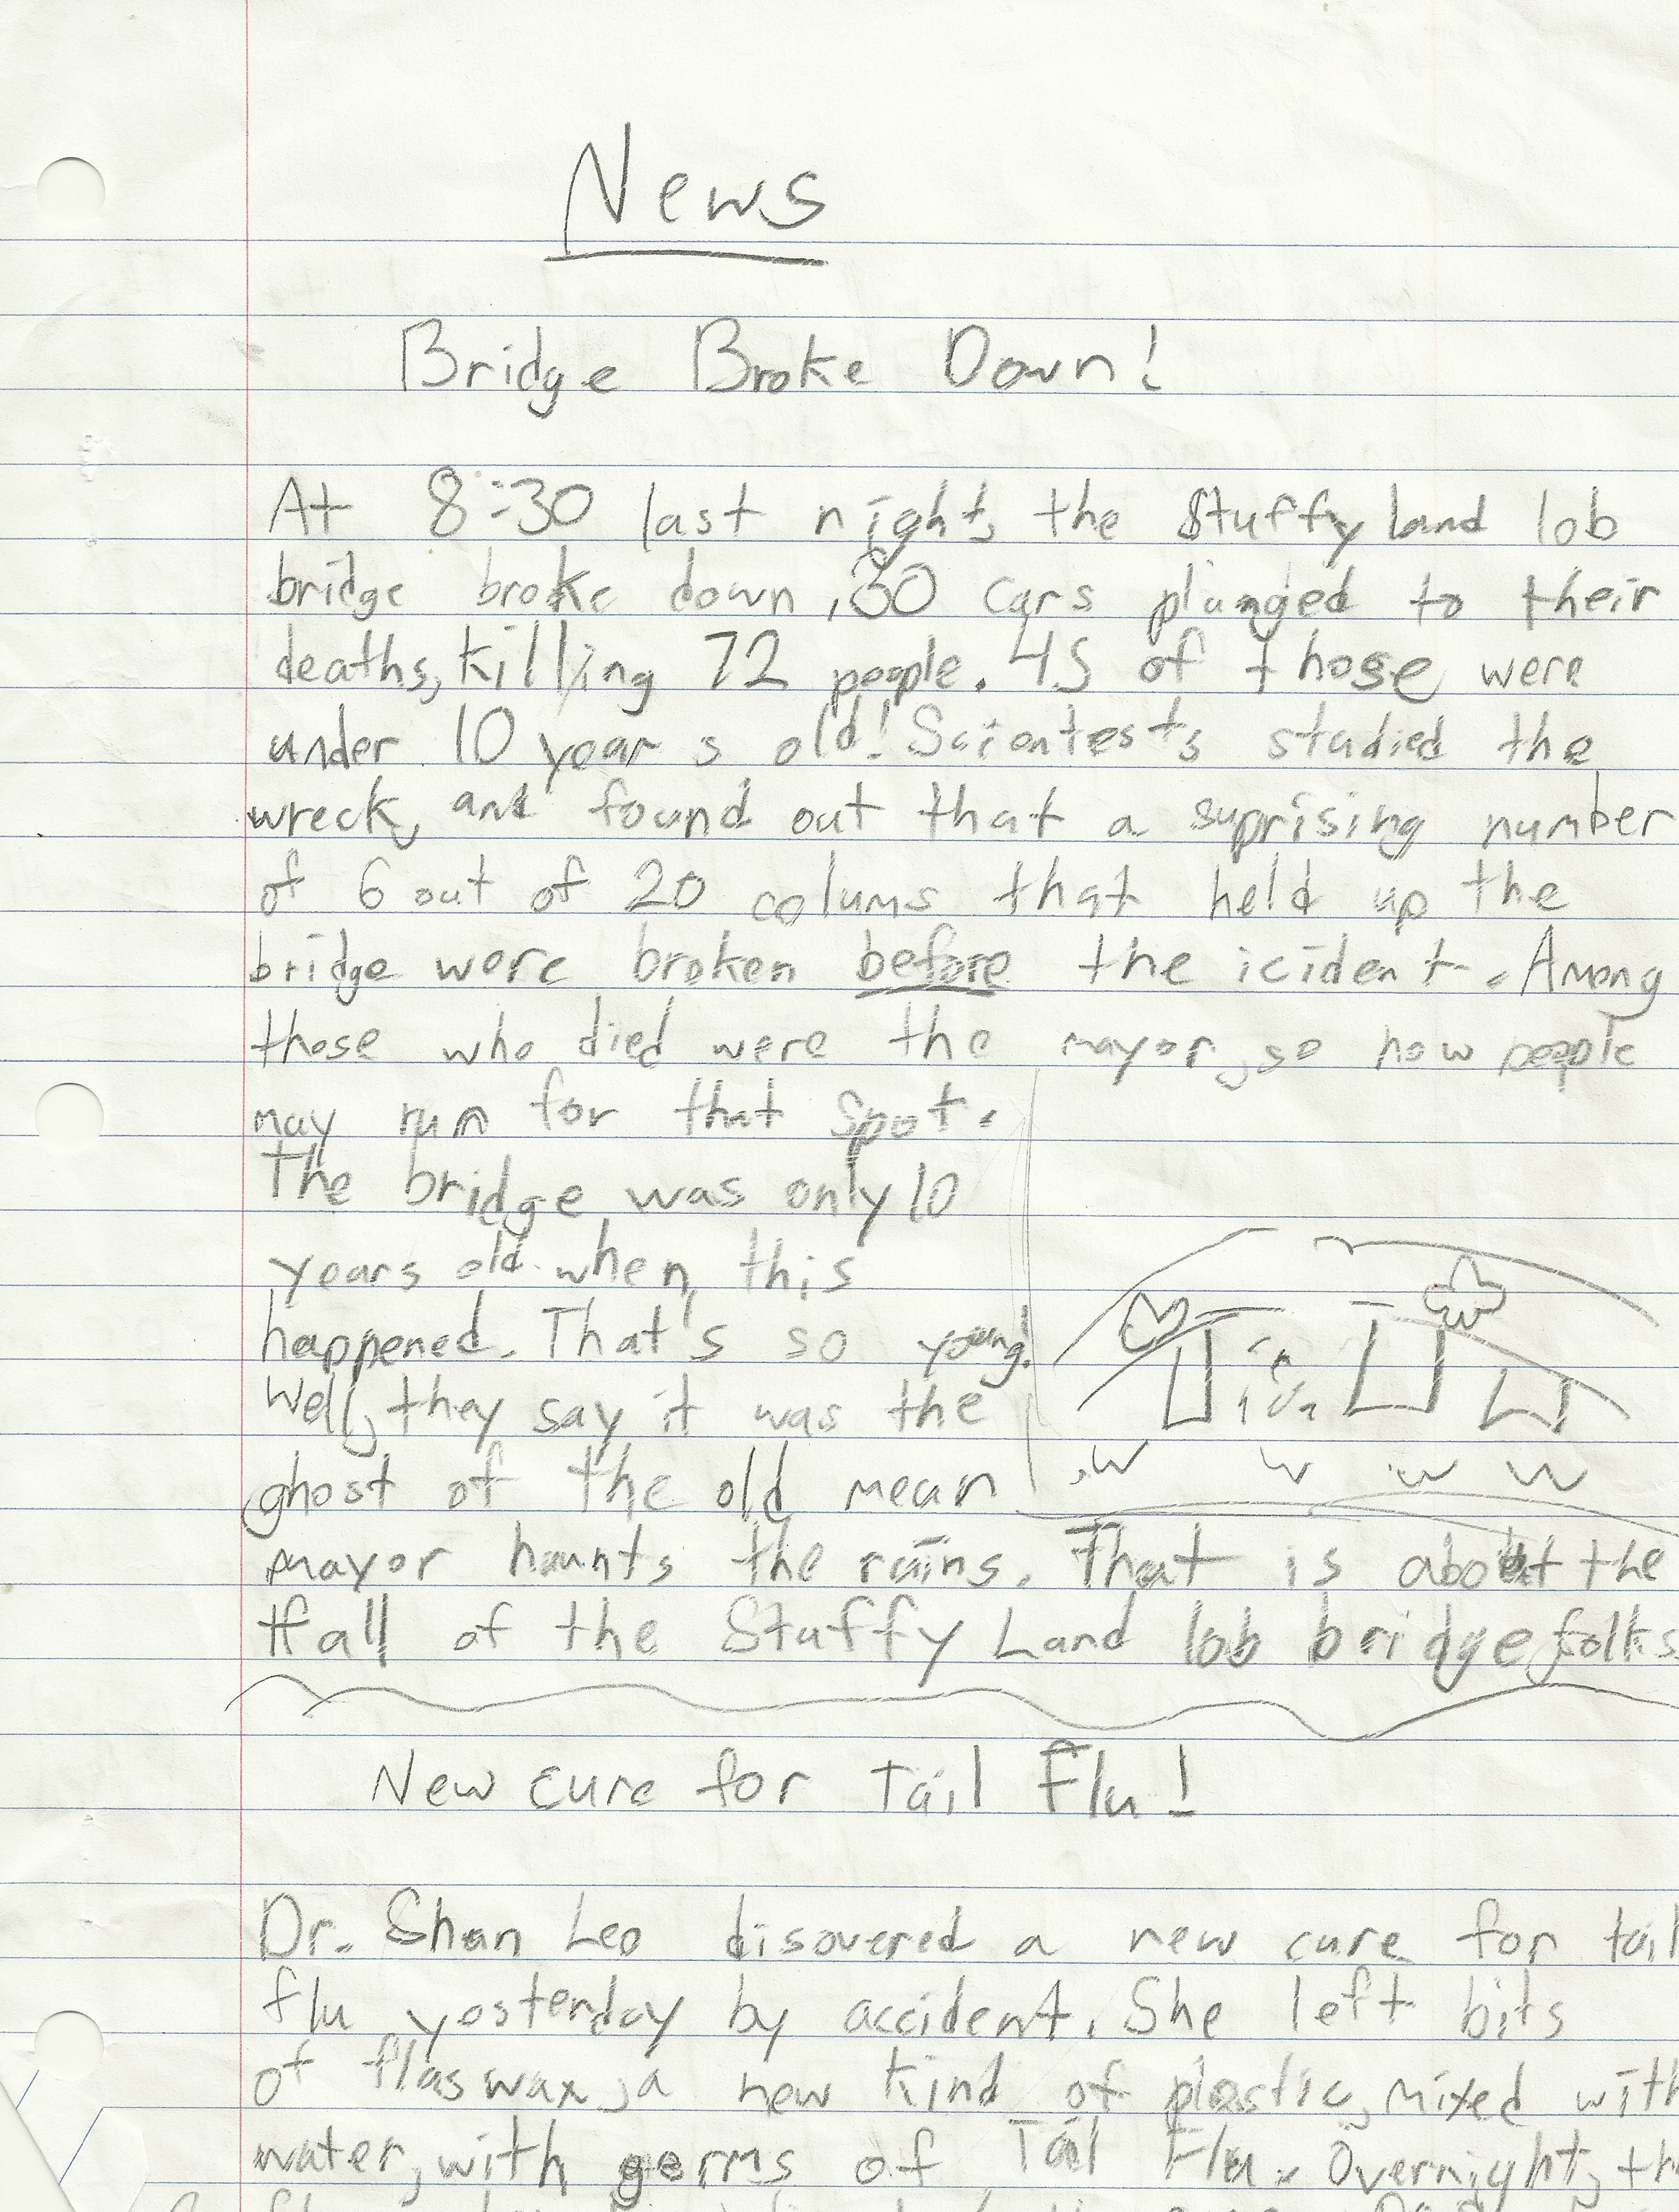 News
Bridge Broke Down!
At 8:30 last night, the Stuffy Land lob
bridge broke down, 30 cars plunged to their
deaths, killing 72 people. 45 of those were
under 10 years old! Scientests studied the
wreck, and found out that a suprising number
of 6 out of 20 colums that held up the
bridge were broken before the icident. Among
those who died were the mayor, so now people
may run for that spot.
The bridge was only 10
years old when this
happened. That's so young!
Well, they say it was the
ghost of the old mean
mayor haunts the ruins. That is about the
fall of the Stuffy Land lob bridge folks
New cure for Tail Flu!
Dr. Shan Leo disovered a new cure for tail
flu yesterday by accident. She left bits
of flaswax, a new kind of plastic, mixed with
water, with germs of Tail Flu. Overnight, th